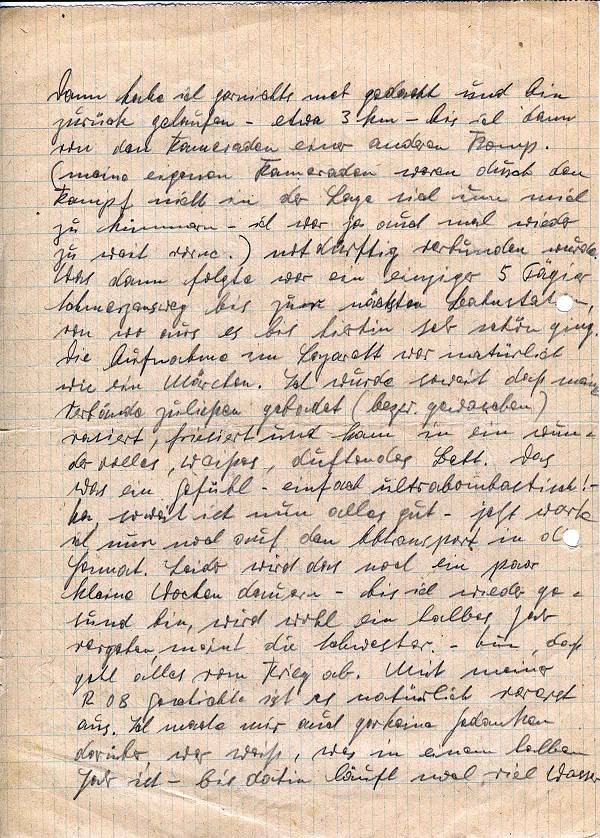 Dann habe ich garnichts mehr gedacht und bin
zurück gelaufen - etwa 3 km - bis ich dann
von den Kameraden einer anderen Komp.
(meine eigenen Kameraden waren durch den
Kampf nicht in der Lage sich um mich
zu kümmern - ich war ja auch mal wieder
zu weit vorne.) notdürftig verbunden wurde.
Was dann folgte war ein einziger 5 Tägier
Schmerzensweg bis zur nächsten Bahnstation,
von wo aus es bis hierhin sehr schön ging.
Die Aufnahme im Lazarett war natürlich
wie ein Märchen. Ich wurde soweit daß meine
Verbände zuließen gebadet (bezw. gewaschen)
rasiert, frisiert und kam in ein wun-
dervolles, weißes, duftendes Bett. Das
was ein Gefühl - einfach ultrabombastisch! -
Na, soweit ist nun alles gut - jetzt warte
ich nur noch auf den Abtransport in die
Heimat. Leider wird das noch ein paar
kleine Wochen dauern - bis ich wieder ge-
sund bin, wird wohl ein halbes Jahr
vergehen, meint die Schwester. - Nun, das
geht alles vom Krieg ab. Mit meiner
R 08 Geschichte ist es natürlich vorerst
aus. Ich mache mir auch gar keine Gedanken
darüber, wer weiß, was in einem halben
Jahr ist - bis dahin läuft noch viel Wasser